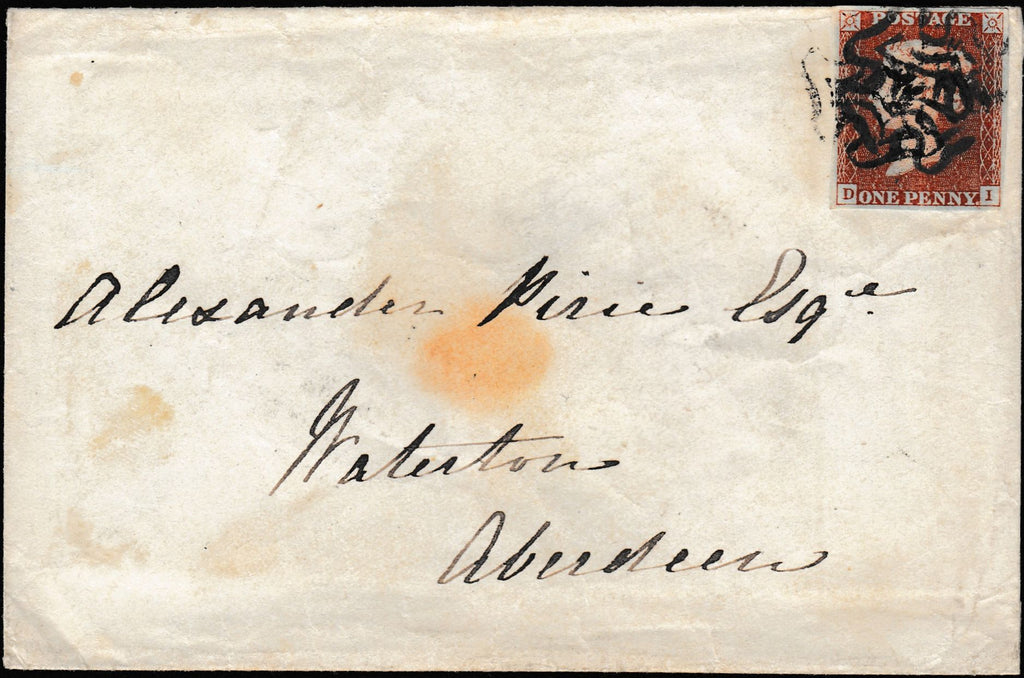 POSTAGE
D ONE PENNY I
Alexander Pirie Esqre
Waterton
Aberdeen